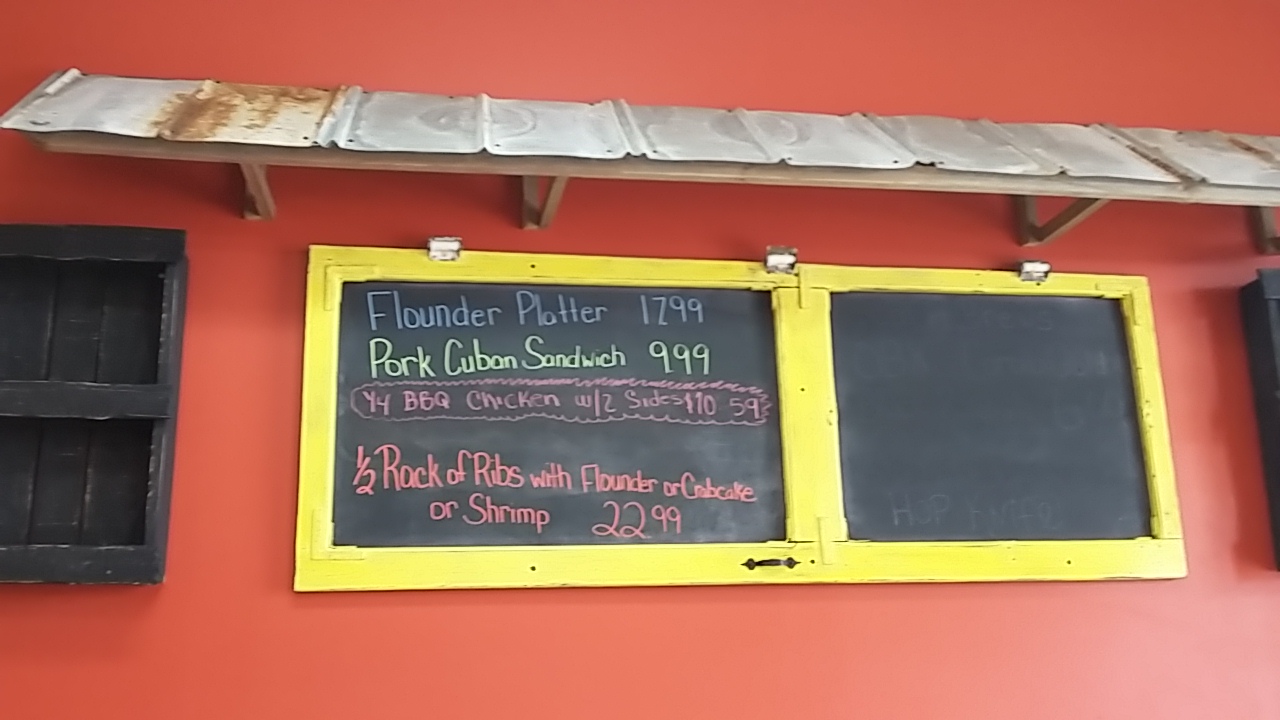 Flounder Platter 1799
Pork Cuban Sandwich 999
1/4 BBQ Chicken w/2 Sides $10 59
1/2 Rack of Ribs with Flounder or Crabcake
or Shrimp 2299